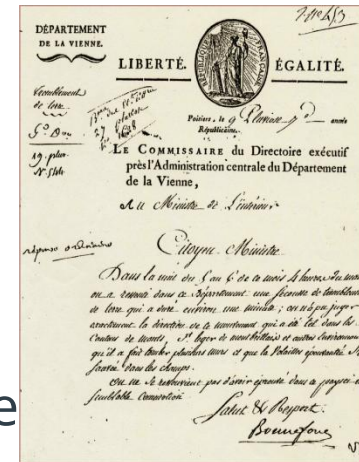 DÉPARTEMENT
DE LA VIENNE.
LIBERTÉ.
RÉPUBLIQUE FRANÇAISE
ÉGALITÉ.
Tremblement
de terre.
Poitiers, le 9 Pluviose année
Républicaine.
LE COMMISSAIRE du Directoire exécutif
près l'Administration centrale du Département
de la Vienne,
Au Ministre de l'intérieur
Citoyen Ministre
Dans la nuit du 5 au 6 de ce mois 4 heures du matin
on a ressenti dans ce Département une secousse de tremblement
de terre qui a duré environ une minute; on n'a pu juger
exactement la direction de ce mouvement qui a été tel dans les
Cantons de Monts, St léger de montbrillais et autres Environnants
qu'il a fait tomber plusieurs murs et que la Volaille épouvantée
sauva dans les champs.
On ne se ressouvient pas d'avoir éprouvé dans ce pays
semblable Commotion.
Salut & Respect.
Bonnefons
e